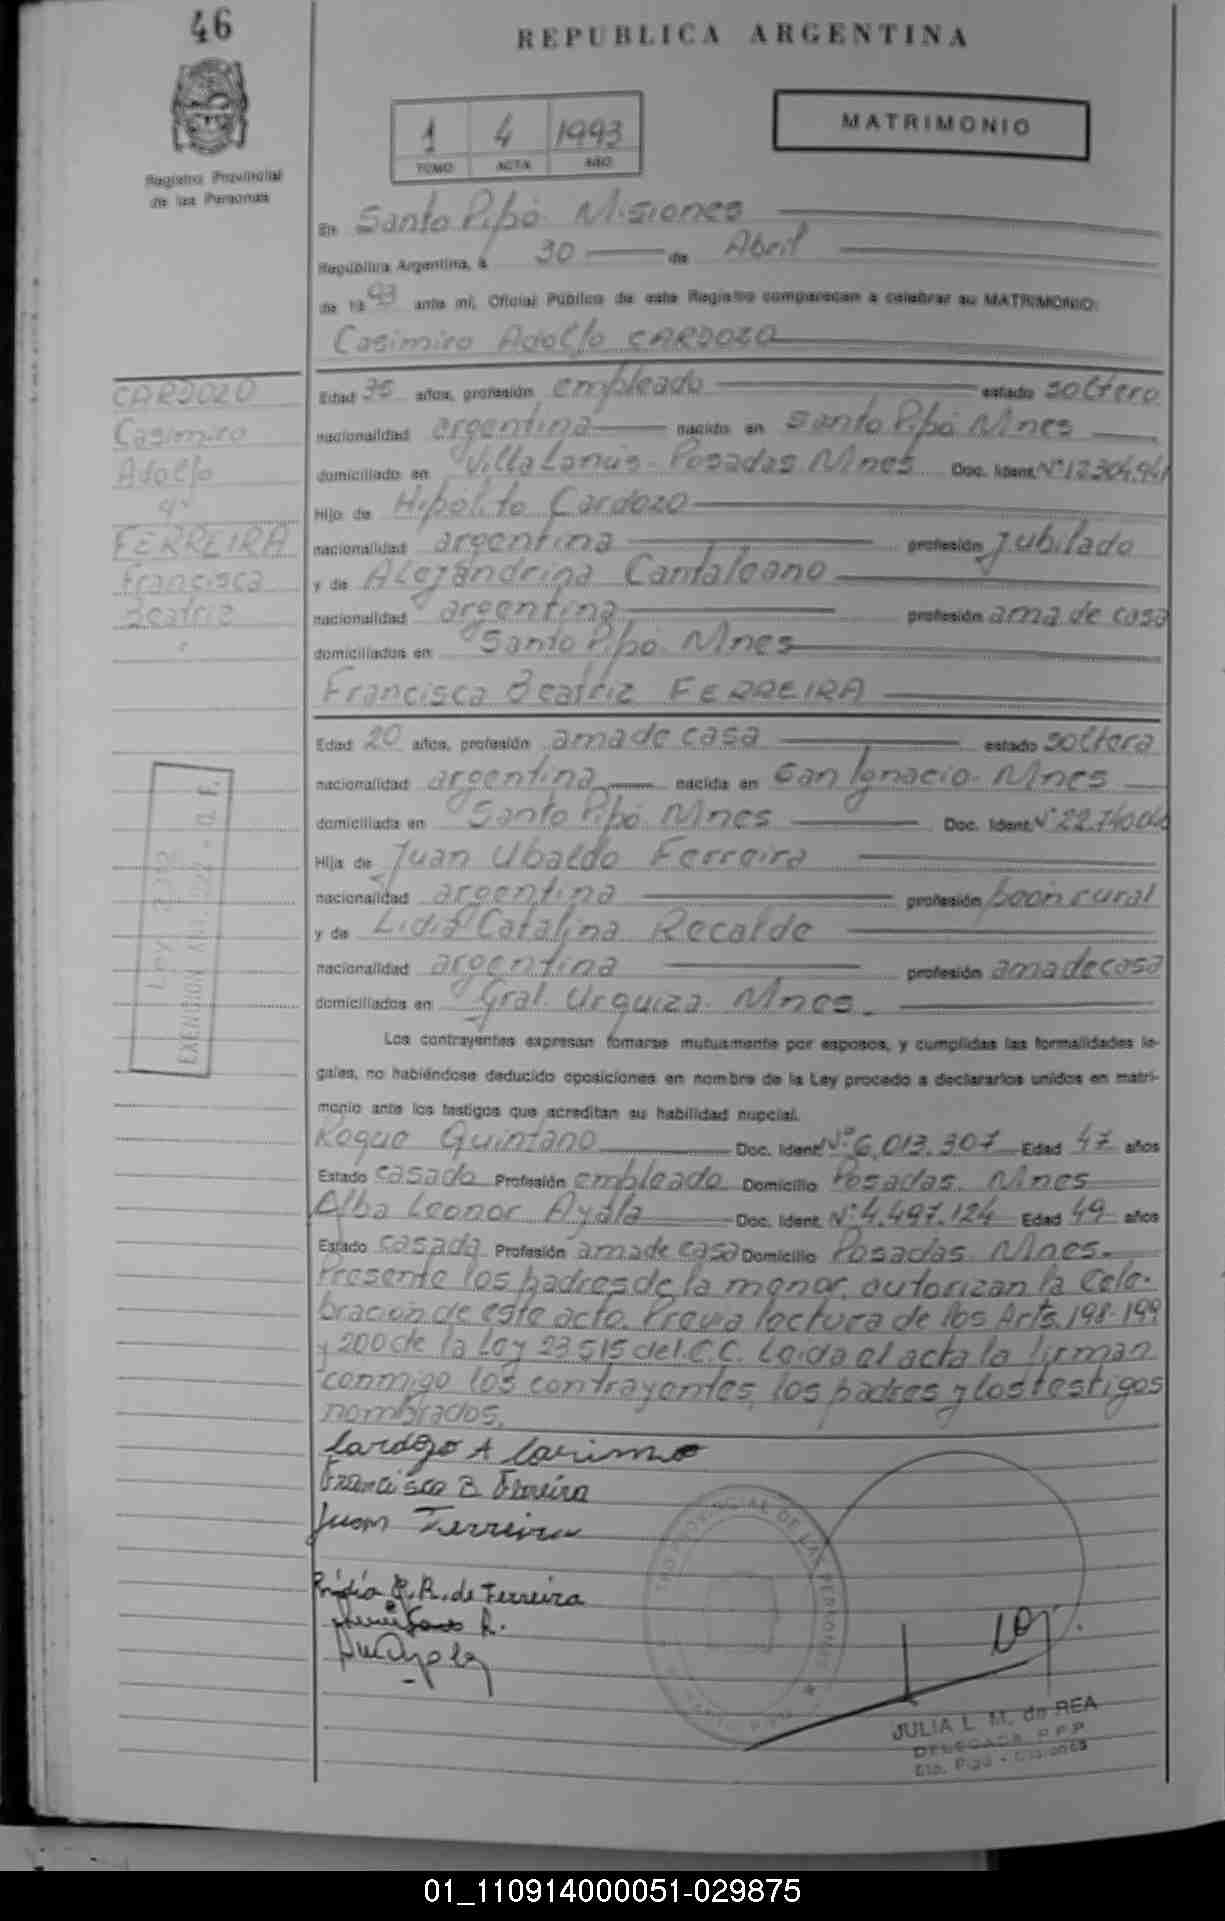 46
REPUBLICA ARGENTINA
Registro Provincial
de las Personas
1 4 1993
TOMO ACTA AÑO
MATRIMONIO
En Santo Pipó. Misiones
República Argentina, a 30 de Abril
de 19 93 ante mí, Oficial Público de este Registro comparecen a celebrar su MATRIMONIO:
Casimiro Adolfo CARDOZO
CARDOZO
Casimiro
Adolfo
FERREIRA
Francisca
Beatriz
Edad 35 años, profesión empleado estado soltero
nacionalidad argentina nacido en Santo Pipó Mnes
domiciliado en Villa Lanús. Posadas Mnes Doc. Ident. Nº 12.304.941
Hijo de Hipólito Cardozo
nacionalidad argentina profesión jubilado
y de Alejandrina Cantaleano
nacionalidad argentina profesión ama de casa
domiciliados en Santo Pipó. Mnes
Francisca Beatriz FERREIRA
Edad 20 años, profesión ama de casa estado soltera
nacionalidad argentina nacida en San Ignacio. Mnes
domiciliada en Santo Pipó Mnes Doc. Ident.
Hija de Juan Ubaldo Ferreira
nacionalidad argentina profesión peón rural
y de Lidia Catalina Recalde
nacionalidad argentina profesión ama de casa
domiciliados en Gral. Urquiza. Mnes.
EXENCION
Los contrayentes expresan tomarse mutuamente por esposos, y cumplidas las formalidades le-
gales, no habiéndose deducido oposiciones en nombre de la Ley procedo a declararlos unidos en matri-
monio ante los testigos que acreditan su habilidad nupcial.
Roque Quintano Doc. Ident. Nº 6.013.307 Edad 47 años
Estado casado Profesión empleado Domicilio Posadas. Mnes
Alba Leonor Ayala Doc. Ident. Nº 4.497.124 Edad 49 años
Estado casada Profesión ama de casa Domicilio Posadas Mnes.
Presente los padres de la menor, autorizan la cele-
bración de este acto. Previa lectura de los Arts. 198-199
y 200 de la Ley 23.515 del C.C. Leída el acta la firman
conmigo los contrayentes, los padres y los testigos
nombrados.
Cardozo A Casimiro
Francisca B Ferreira
Juan Ferreira
R. de Ferreira
PROVINCIAL DE LAS PERSONAS
JULIA L. M. de REA
DELEGADA R.P.P.
Sto. Pipó - Misiones
01_110914000051-029875